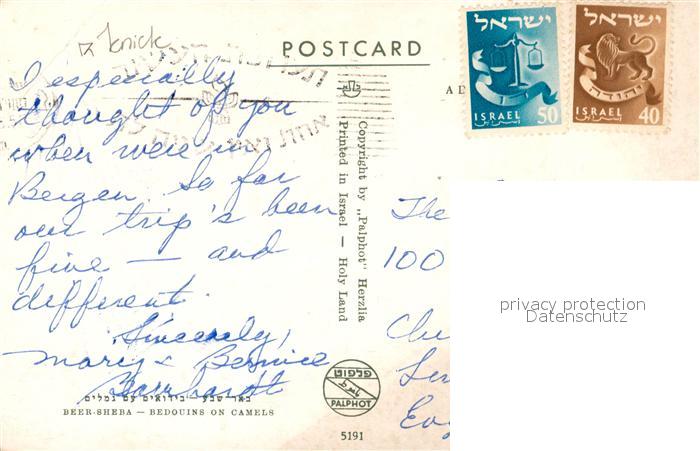 knick
POSTCARD
ישראל
ישראל
יהודה
ISRAEL 50
ISRAEL 40
AD
I especially
thought of you
when were in
Bergen. So far
our trip's been
fine — and
different.
Sincerely,
Mary & Bernice
Copyright by „Palphot" Herzlia
Printed in Israel — Holy Land
The
100
privacy protection
Datenschutz
באר שבע - בידואים עם גמלים
BEER-SHEBA — BEDOUINS ON CAMELS
פלפוט
PALPHOT
5191